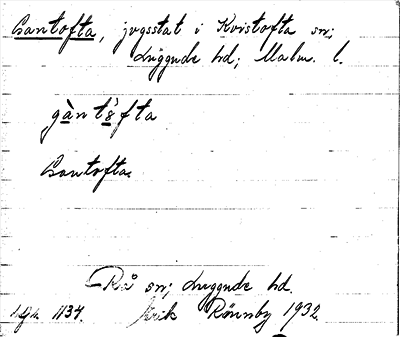 Gantofta, jvgsstat i Kvistofta sn;
Luggude hd; Malm. l.
gànt`ȣfta
Gantofta.
Rå sn; Luggude hd.
1134.
Erik Rönnby 1932.